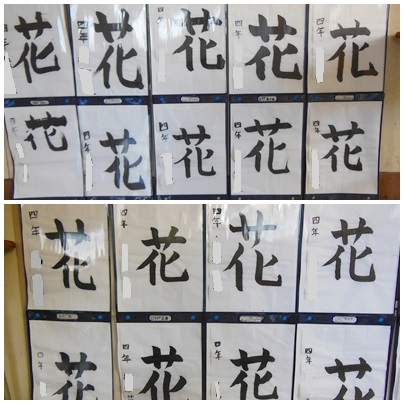 花
四年
花
四年
花
四年
花
四年
花
四年
花
四年
花
四年
花
四年
花
四年
花
四年
花
四年
花
四年
花
四年
花
四年
花
四年
花
四年
花
四年
花
四年